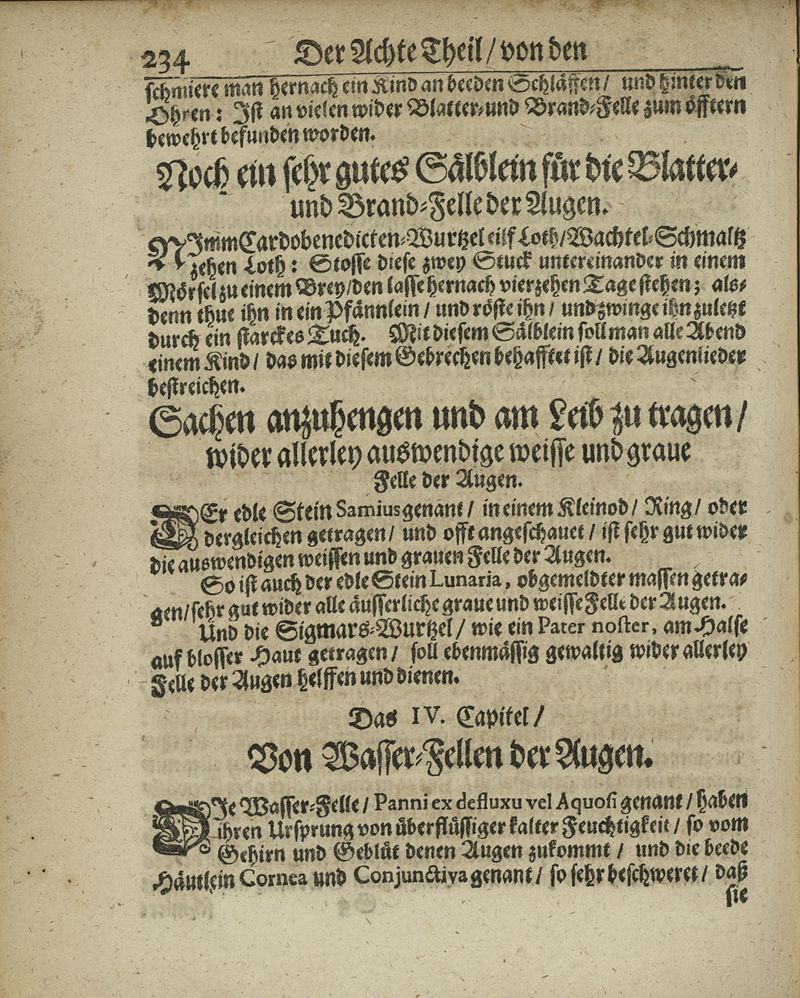 234 Der Achte Theil / von den
schmiere man hernach ein Kind an beeden Schläffen / und hinter den
Ohren: Ist an vielen wider Blatter- und Brand-Felle zum öfftern
bewehrt befunden worden.
Noch ein sehr gutes Sälblein für die Blatter-
und Brand-Felle der Augen.
NImm Cardobenedicten-Wurtzel eilf Loth / Wachtel-Schmaltz
zehen Loth: Stosse diese zwey Stuck untereinander in einem
Mörsel zu einem Brey / den lasse hernach vierzehen Tage stehen; als-
denn thue ihn in ein Pfännlein / und röste ihn / und zwinge ihn zuletzt
durch ein starckes Tuch. Mit diesem Sälblein soll man alle Abend
einem Kind / das mit diesem Gebrechen behafftet ist / die Augenlieder
bestreichen.
Sachen anzuhengen und am Leib zu tragen /
wider allerley auswendige weisse und graue
Felle der Augen.
DEr edle Stein Samius genant / in einem Kleinod / Ring / oder
dergleichen getragen / und offt angeschauet / ist sehr gut wider
die auswendigen weissen und grauen Felle der Augen.
So ist auch der edle Stein Lunaria, obgemeldter massen getra-
gen / sehr gut wider alle äusserliche graue und weisse Felle der Augen.
Und die Sigmars-Wurtzel / wie ein Pater noster, am Halse
auf blosser Haut getragen / soll ebenmässig gewaltig wider allerley
Felle der Augen helffen und dienen.
Das IV. Capitel /
Von Wasser-Fellen der Augen.
DIe Wasser-Felle / Panni ex defluxu vel Aquosi genant / haben
ihren Ursprung von überflüssiger kalter Feuchtigkeit / so vom
Gehirn und Geblüt denen Augen zukommt / und die beede
Häutlein Cornea und Conjunctiva genant / so sehr beschweret / daß
sie